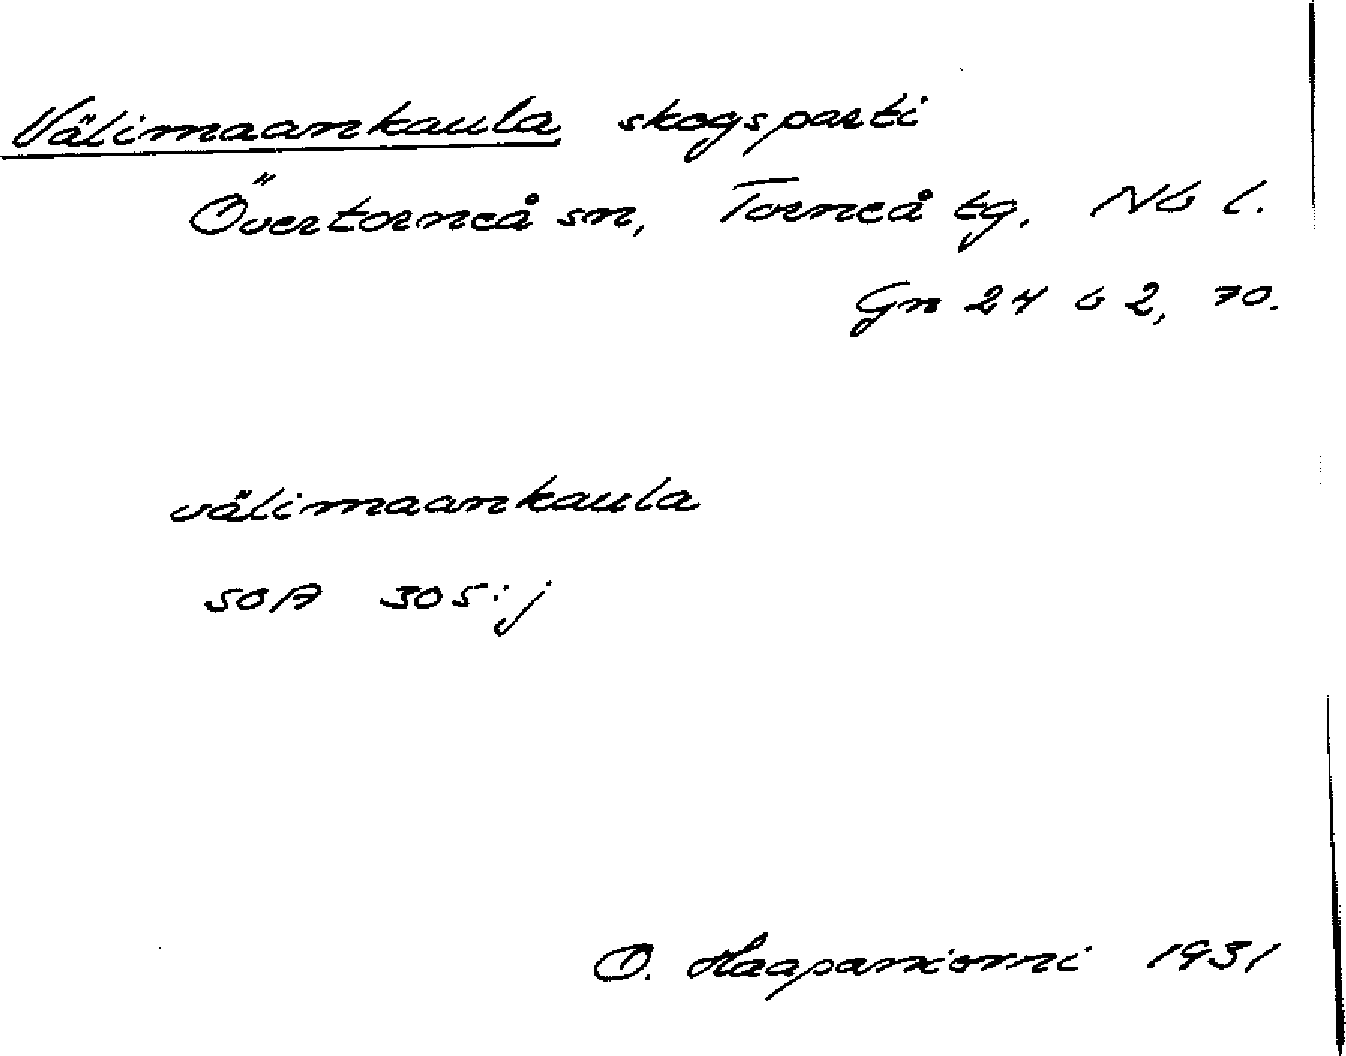 Välimaankaula skogsparti
Övertorneå sn, Torneå tg. Nb l.
Gn 24 b 2, 70.
välimaankaula
SOA 305:j
O. Haapaniemi 1931